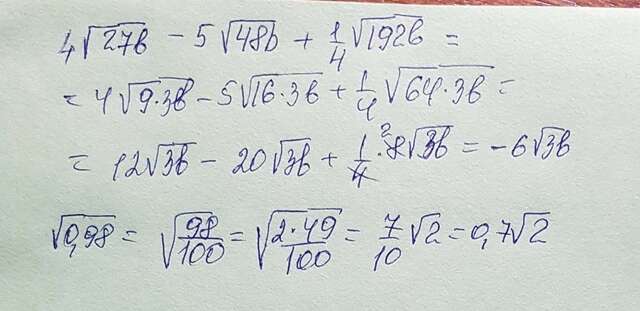 4√27b − 5√48b + 1/4 √192b =
= 4√9·3b − 5√16·3b + 1/4 √64·3b =
= 12√3b − 20√3b + 1/4 · 8² √3b = −6√3b
√0,98 = √98/100 = √2·49/100 = 7/10 √2 = 0,7√2